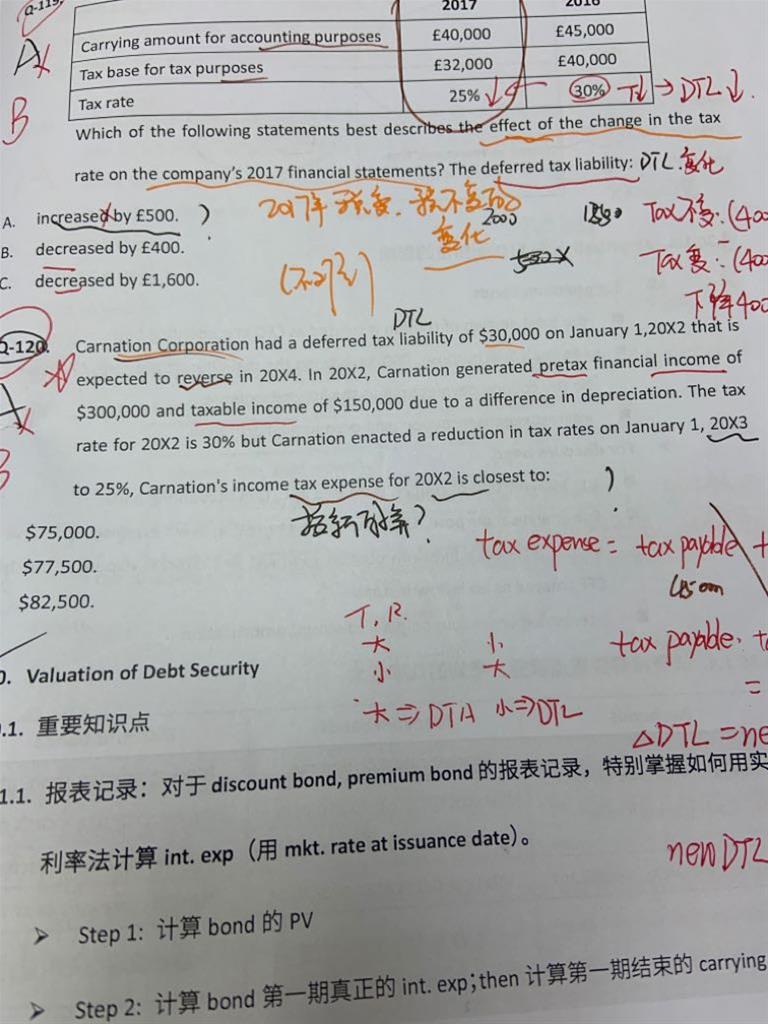 Q-119
2017 2016
Carrying amount for accounting purposes £40,000 £45,000
Tax base for tax purposes £32,000 £40,000
Tax rate 25% 30% → DTL ↓.
A
B
Which of the following statements best describes the effect of the change in the tax
rate on the company's 2017 financial statements? The deferred tax liability: DTL 变化
A. increased by £500.
B. decreased by £400.
C. decreased by £1,600.
2017年 税变. 税不变的
变化
2000
Tax不变: (400
Tax变: (400
下降400
DTL
Q-120. Carnation Corporation had a deferred tax liability of $30,000 on January 1,20X2 that is
expected to reverse in 20X4. In 20X2, Carnation generated pretax financial income of
$300,000 and taxable income of $150,000 due to a difference in depreciation. The tax
rate for 20X2 is 30% but Carnation enacted a reduction in tax rates on January 1, 20X3
to 25%, Carnation's income tax expense for 20X2 is closest to:
按新的算?
$75,000.
$77,500.
$82,500.
tax expense = tax payable +
T. R.
大 小
小 大
大 ⇒ DTA 小 ⇒ DTL
tax payable.
=
ΔDTL = ne
new DTL
. Valuation of Debt Security
.1. 重要知识点
1.1. 报表记录：对于 discount bond, premium bond 的报表记录，特别掌握如何用实
利率法计算 int. exp（用 mkt. rate at issuance date）。
➢ Step 1: 计算 bond 的 PV
➢ Step 2: 计算 bond 第一期真正的 int. exp;then 计算第一期结束的 carrying